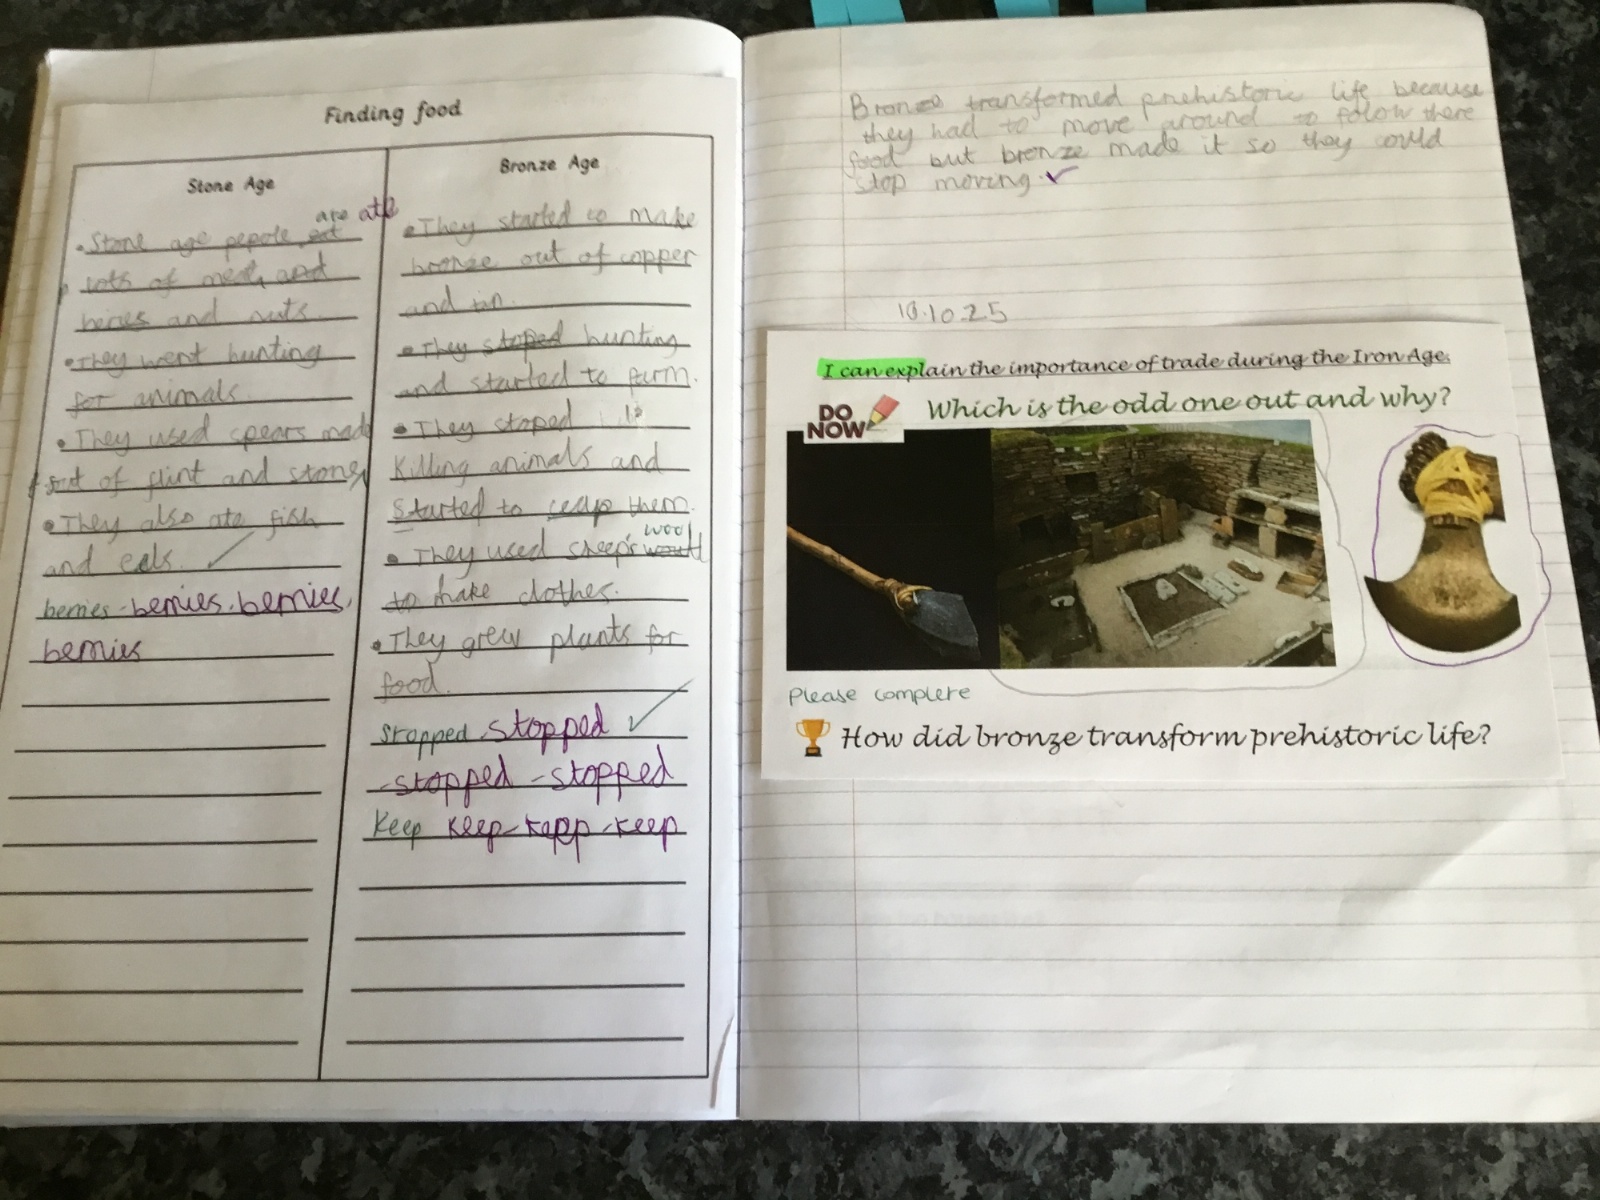 Finding food
Stone Age
are ate
• Stone age pepole eat
lots of meat, and
beries and nuts.
• They went hunting
for animals.
• They used spears made
out of flint and stone,
• They also ate fish
and eels.
berries - berries, berries,
berries
Bronze Age
• They started to make
bronze out of copper
and tin.
• They stoped hunting
and started to farm.
• They stoped
killing animals and
started to ceap them.
wool
• They used sheep's
to make clothes.
• They grew plants for
food.
Stopped stopped
-stopped -stopped
Keep keep-kepp-keep
Bronze transformed prehistoric life because
they had to move around to folow there
food but bronze made it so they could
stop moving.
10.10.25
I can explain the importance of trade during the Iron Age.
DO NOW
Which is the odd one out and why?
Please complete
How did bronze transform prehistoric life?